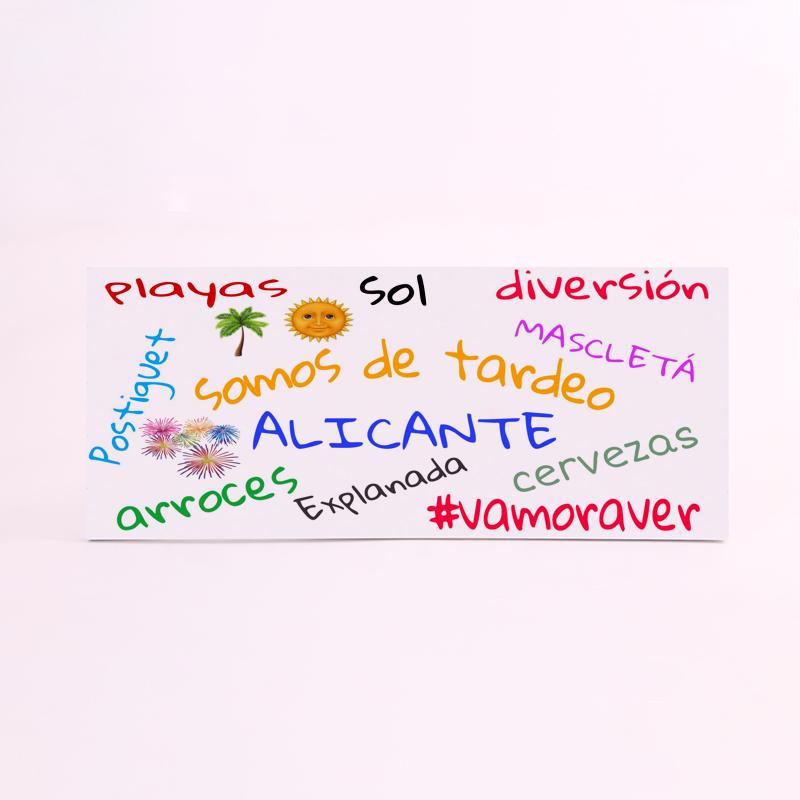 playas
sol
diversión
MASCLETÁ
Postiguet
somos de tardeo
ALICANTE
cervezas
arroces
Explanada
#vamoraver